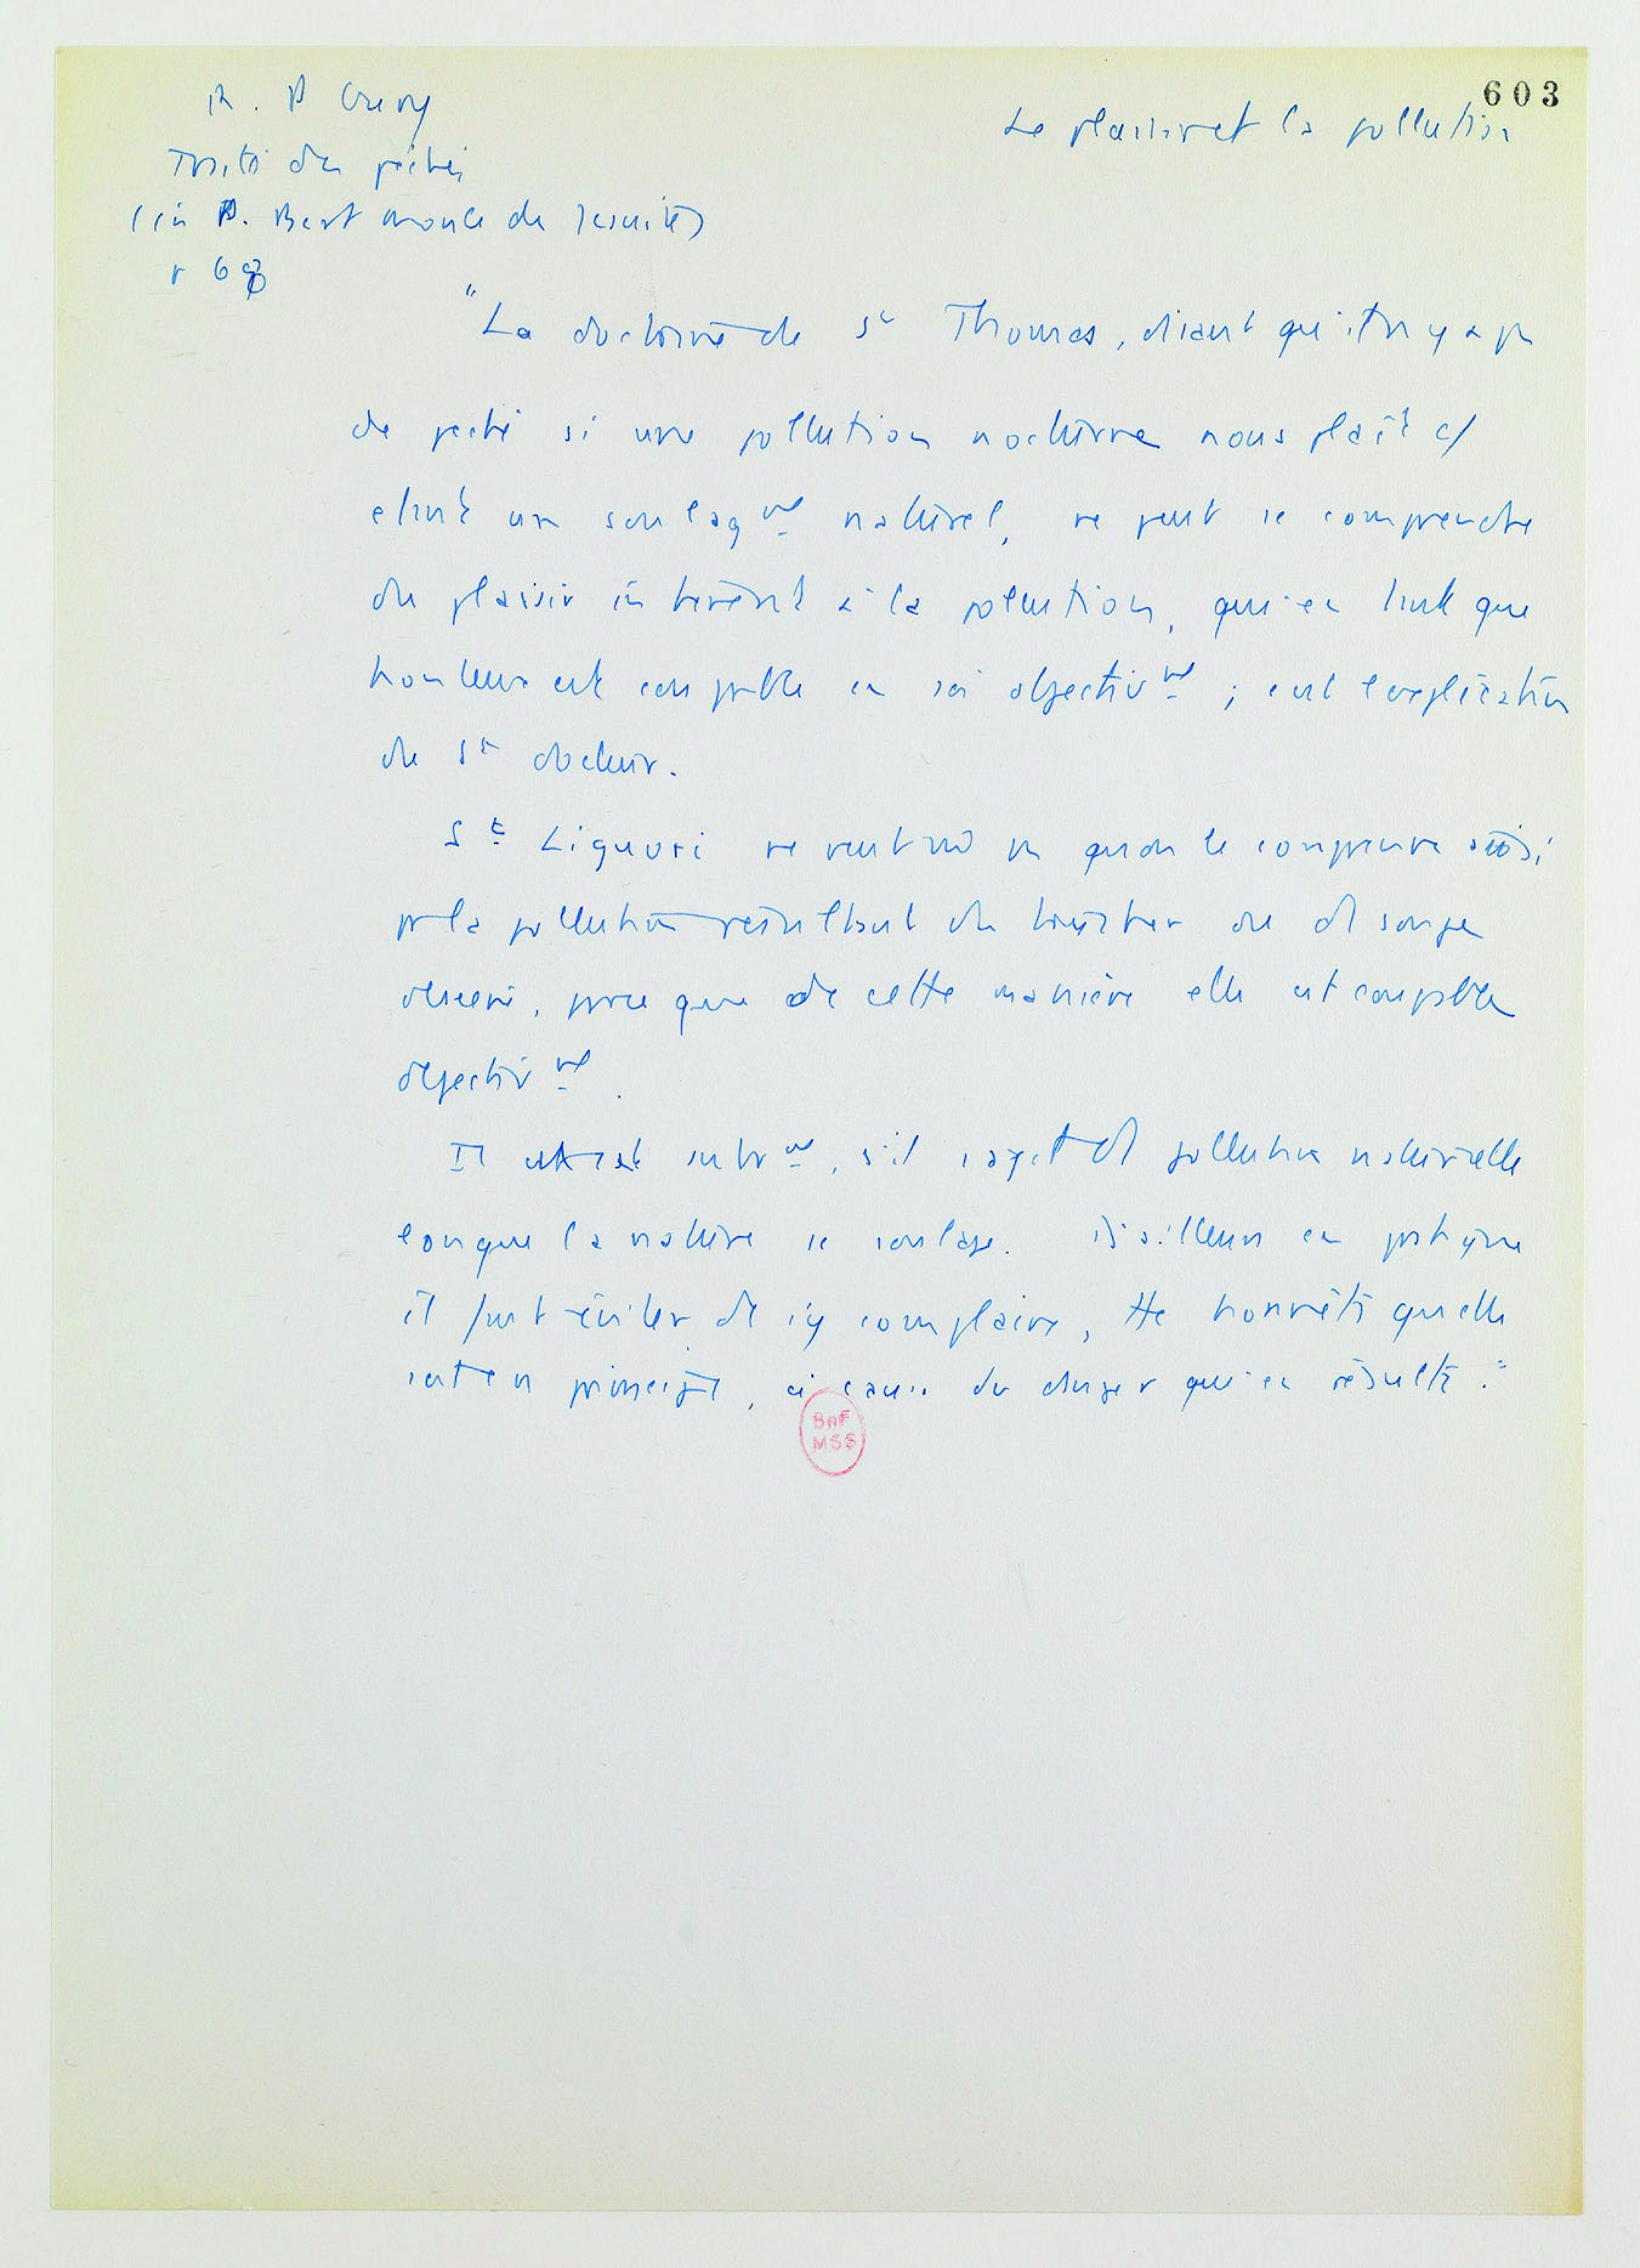 603
Le plaisir et la pollution
R. P Gury
Traité des péchés
(in P. Bert morale des Jésuites)
p 69
"La doctrine de St Thomas, disant qu'il n'y a pas
de péché si une pollution nocturne nous plaît c/
étant un soulagmt naturel, ne peut se comprendre
du plaisir inhérent à la pollution, qui en tant que
honteux est coupable en soi objectivmt ; c'est l'explication
du St docteur.
St Liguori ne veut pas qu'on le comprenne ainsi
pr la pollution résultant du toucher ou d
obscène, parce que de cette manière elle est coupable
objectivmt.
Il autremt, s'il s'agit d pollution naturelle
lorsque la nature se soulage. D'ailleurs en pratique
il faut éviter de s'y complaire, tte honnête qu'elle
soit en principe, à cause du danger qui en résulte."
BnF
MSS